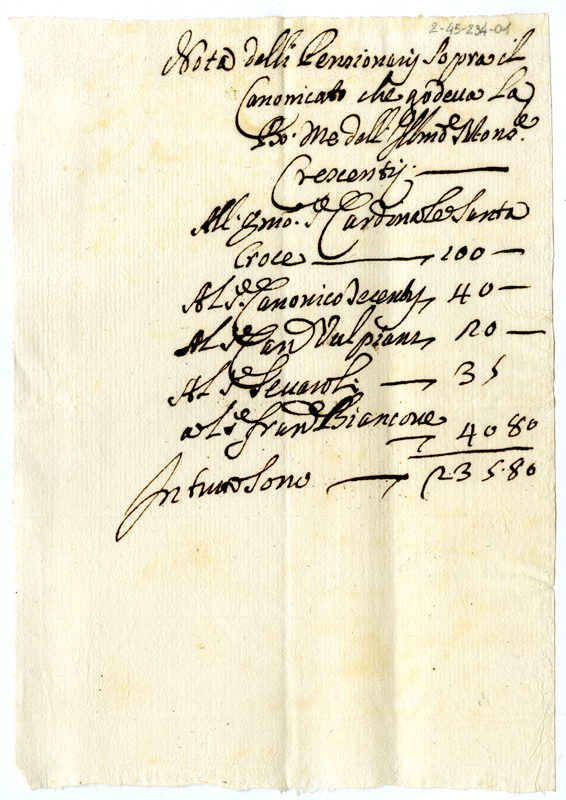 2-45-234-01
Nota delli Pensionarij sopra il
Canonicato che godeva La
Bo: Me dell' Illmo Monsre.
Crescentij.
All' Emo. Sr Cardinale Santa
Croce 100
Al Sr Canonico 40
Al Sr Can Vulpiani 20
Al Sr 35
al Sr Franco Biancone
40 80
In tutto sono 235.80